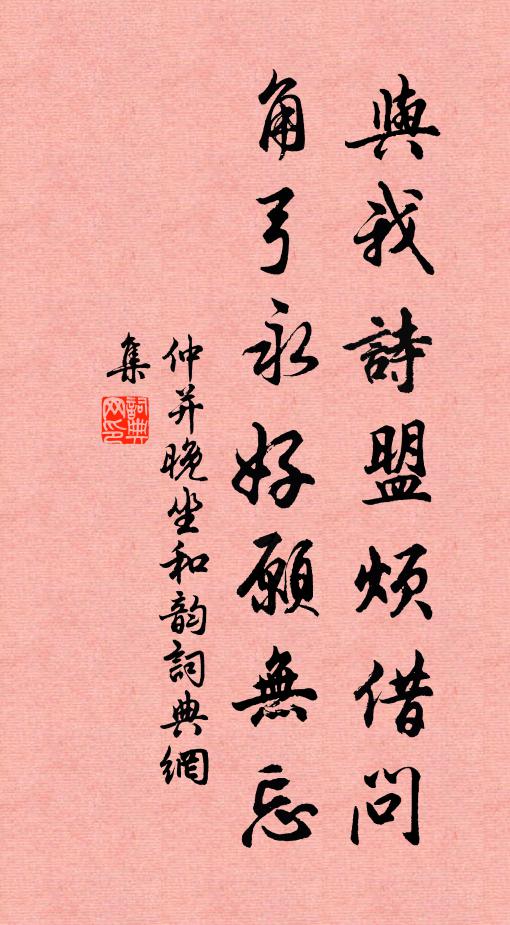 與我詩盟煩借問
角弓永好願無忘
仲并晚坐和韵詞典網
集
詞典
网印